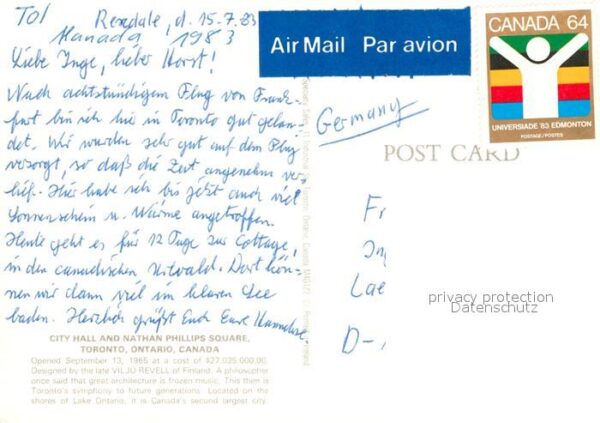 TOI
Rexdale, d. 15.7.83
Kanada 1983
Liebe Inge, lieber Horst!
Nach achtstündigem Flug von Frank-
furt bin ich hie in Toronto gut gelan-
det. Wir wurden sehr gut auf dem Flug
versorgt, so daß die Zeit angenehm ver-
lief. Hier habe ich bis jetzt auch viel
Sonnenschein u. Wärme angetroffen.
Heute geht es für 12 Tage zur Cottage,
in den canadischen Urwald. Dort kön-
nen wir dann viel im klaren See
baden. Herzlich grüßt Euch Eure Hannelore
CITY HALL AND NATHAN PHILLIPS SQUARE,
TORONTO, ONTARIO, CANADA
Opened September 13, 1965 at a cost of $27,035,000.00.
Designed by the late VILJO REVELL of Finland. A philosopher
once said that great architecture is frozen music. This then is
Toronto's symphony to future generations. Located on the
shores of Lake Ontario, it is Canada's second largest city.
Air Mail Par avion
CANADA 64
UNIVERSIADE '83 EDMONTON
POSTAGE/POSTES
Germany
POST CARD
Fr
In
Lae
D-
privacy protection
Datenschutz